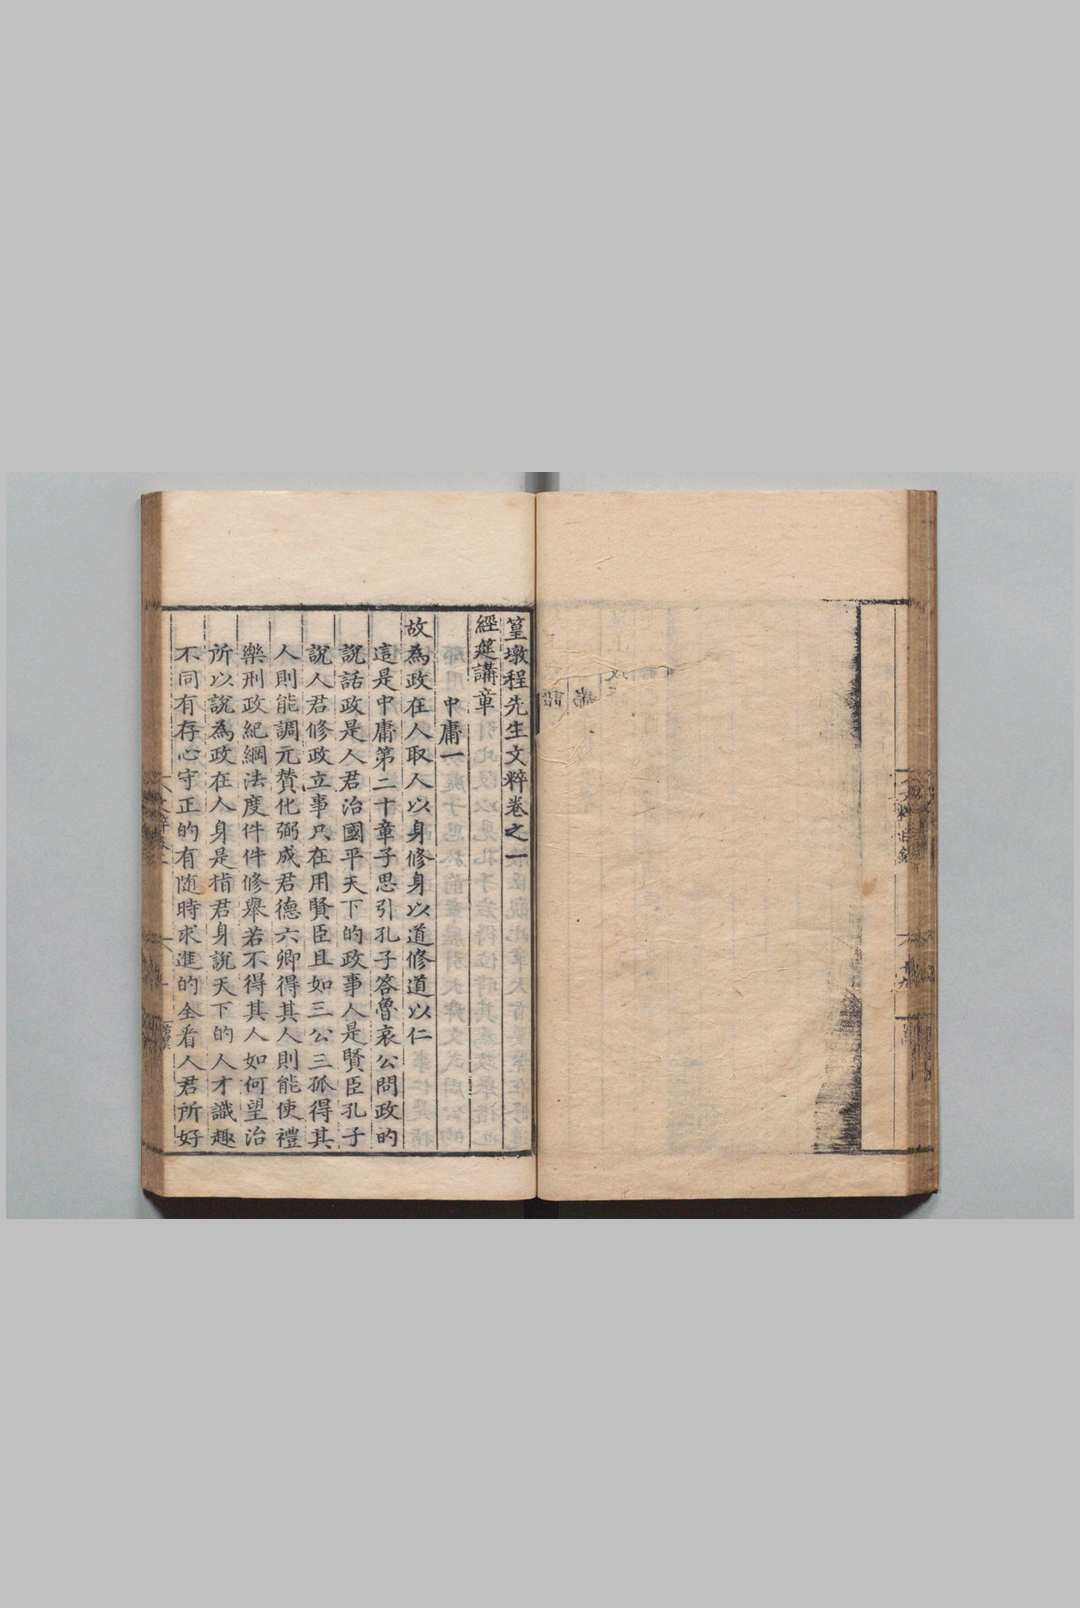 篁墩程先生文粹卷之一
經筵講章
中庸一
故為政在人取人以身修身以道修道以仁
這是中庸第二十章子思引孔子答魯哀公問政的
說話政是人君治國平天下的政事人是賢臣孔子
說人君修政立事只在用賢臣且如三公三孤得其
人則能調元贊化弼成君德六卿得其人則能使禮
樂刑政紀綱法度件件修舉若不得其人如何望治
所以說為政在人身是指君身說天下的人才識趣
不同有存心守正的有随時求進的全看人君所好